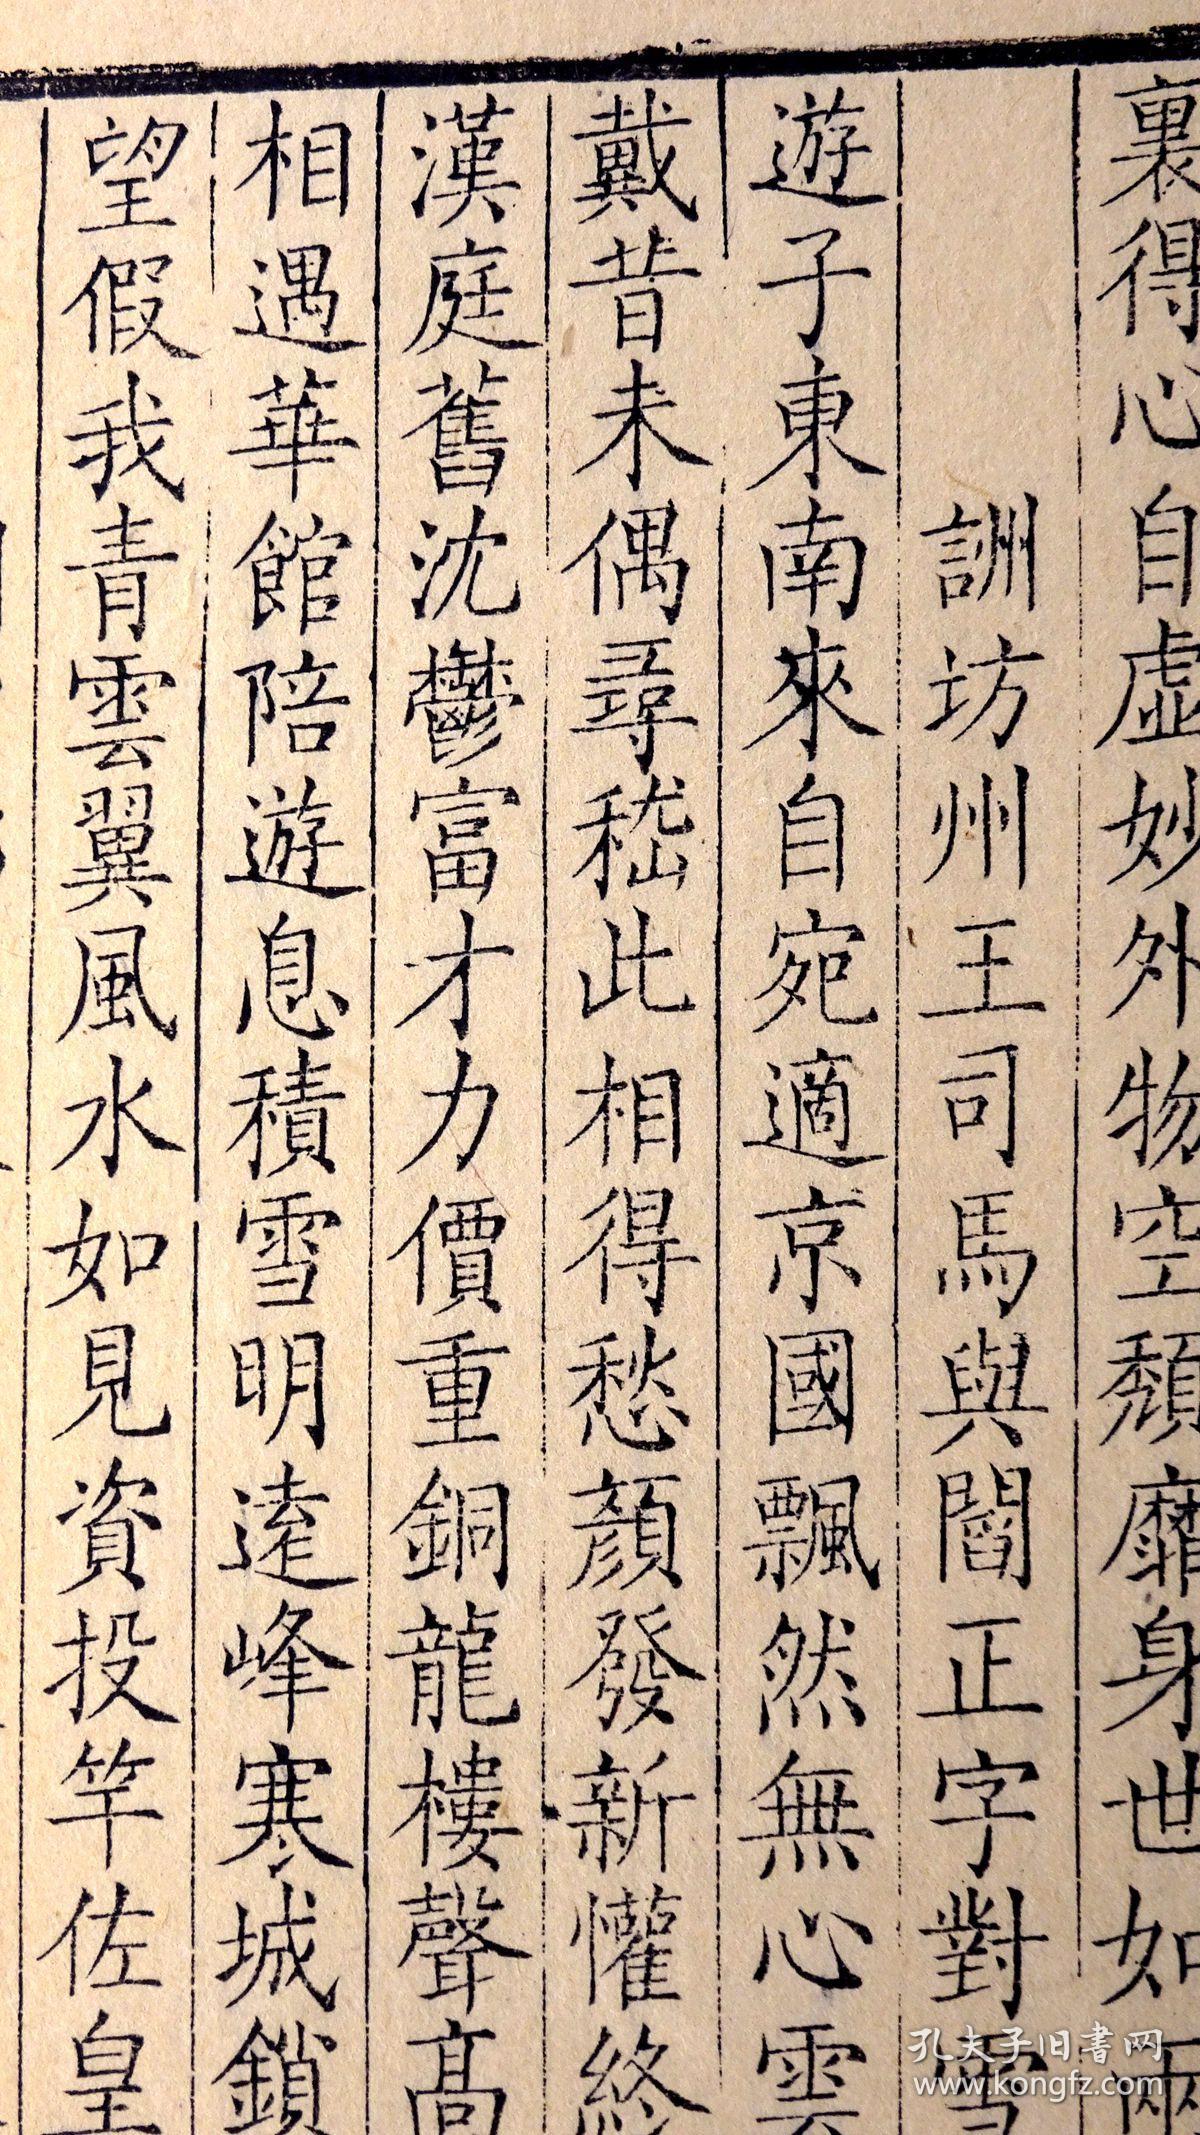 裏得心自虛妙外物空頹靡身世如兩
詶坊州王司馬與閻正字對雪
遊子東南來自宛適京國飄然無心雲
戴昔未偶尋嵇此相得愁顏發新懽終
漢庭舊沈鬱富才力價重銅龍樓聲髙
相遇華館陪遊息積雪明逺峰寒城鎖
望假我青雲翼風水如見資投竿佐皇
孔夫子旧书网
www.kongfz.com